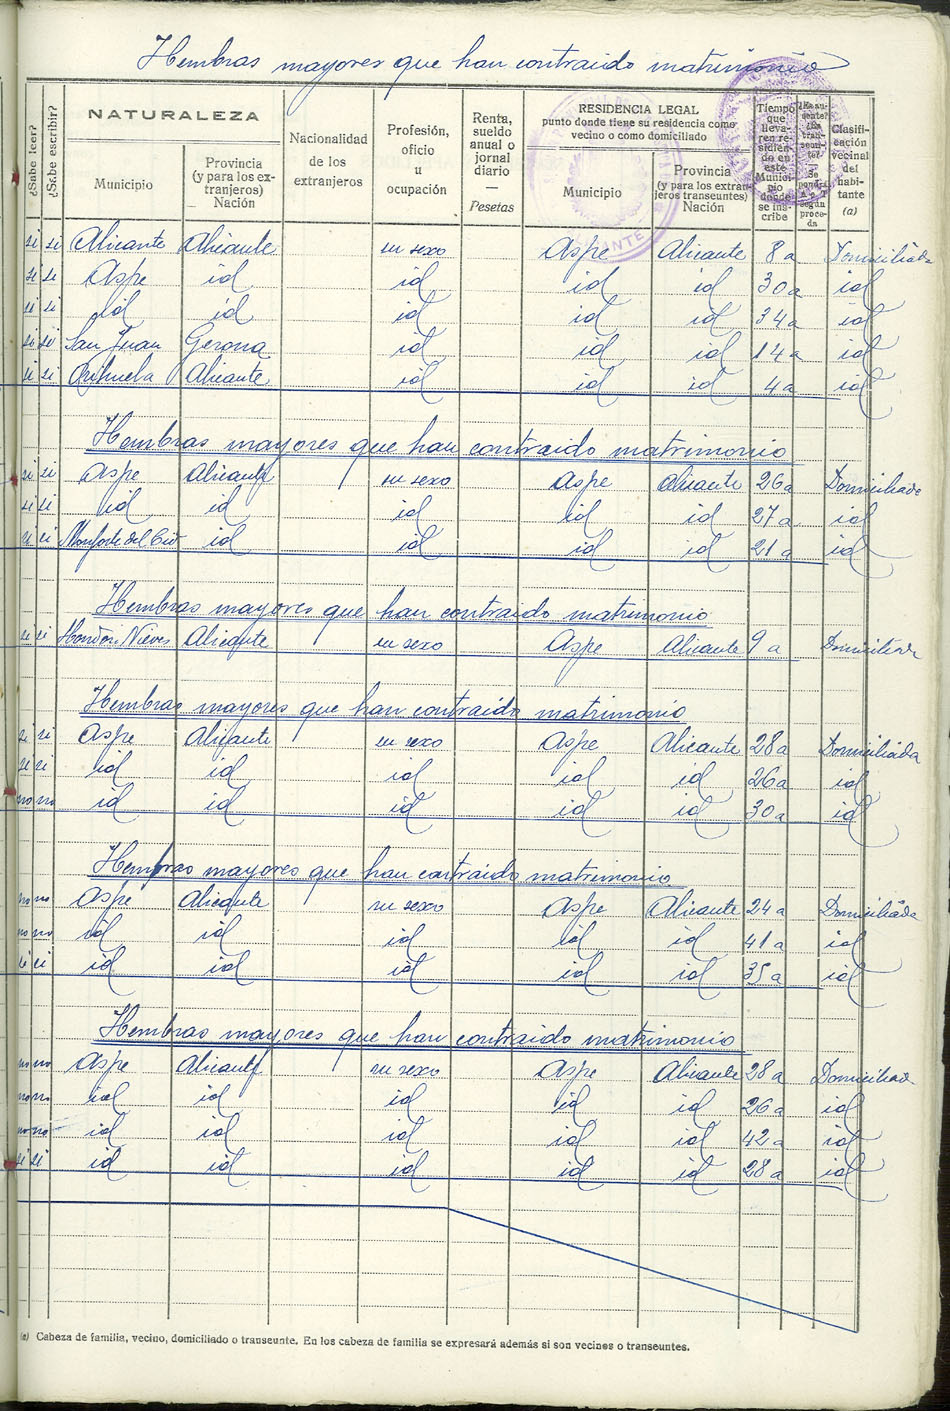 Hembras mayores que han contraido matrimonio
¿Sabe leer?
¿Sabe escribir?
NATURALEZA
Municipio
Provincia (y para los extranjeros) Nación
Nacionalidad de los extranjeros
Profesión, oficio u ocupación
Renta, sueldo anual o jornal diario — Pesetas
RESIDENCIA LEGAL
punto donde tiene su residencia como vecino o como domiciliado
Municipio
Provincia (y para los extranjeros transeuntes) Nación
Tiempo que lleva ren residiendo en este Municipio donde se inscribe
¿Es ausente? ¿Es transeunte? — Se pondrá A o T según proceda
Clasificación vecinal del habitante (a)
si si Alicante Alicante su sexo Aspe Alicante 8 a Domiciliada
si si Aspe id id id id 30 a id
si si id id id id id 34 a id
si si San Juan Gerona id id id 14 a id
si si Orihuela Alicante id id id 4 a id
Hembras mayores que han contraido matrimonio
si si Aspe Alicante su sexo Aspe Alicante 26 a Domiciliada
si si id id id id id 27 a id
si si Monforte del Cid id id id id 21 a id
Hembras mayores que han contraido matrimonio
si si Hondón Nieves Alicante su sexo Aspe Alicante 9 a Domiciliada
Hembras mayores que han contraido matrimonio
si si Aspe Alicante su sexo Aspe Alicante 28 a Domiciliada
si si id id id id id 26 a id
no no id id id id id 30 a id
Hembras mayores que han contraido matrimonio
no no Aspe Alicante su sexo Aspe Alicante 24 a Domiciliada
no no id id id id id 41 a id
si si id id id id id 35 a id
Hembras mayores que han contraido matrimonio
no no Aspe Alicante su sexo Aspe Alicante 28 a Domiciliada
no no id id id id id 26 a id
no no id id id id id 42 a id
si si id id id id id 28 a id
(a) Cabeza de familia, vecino, domiciliado o transeunte. En los cabeza de familia se expresará además si son vecinos o transeuntes.